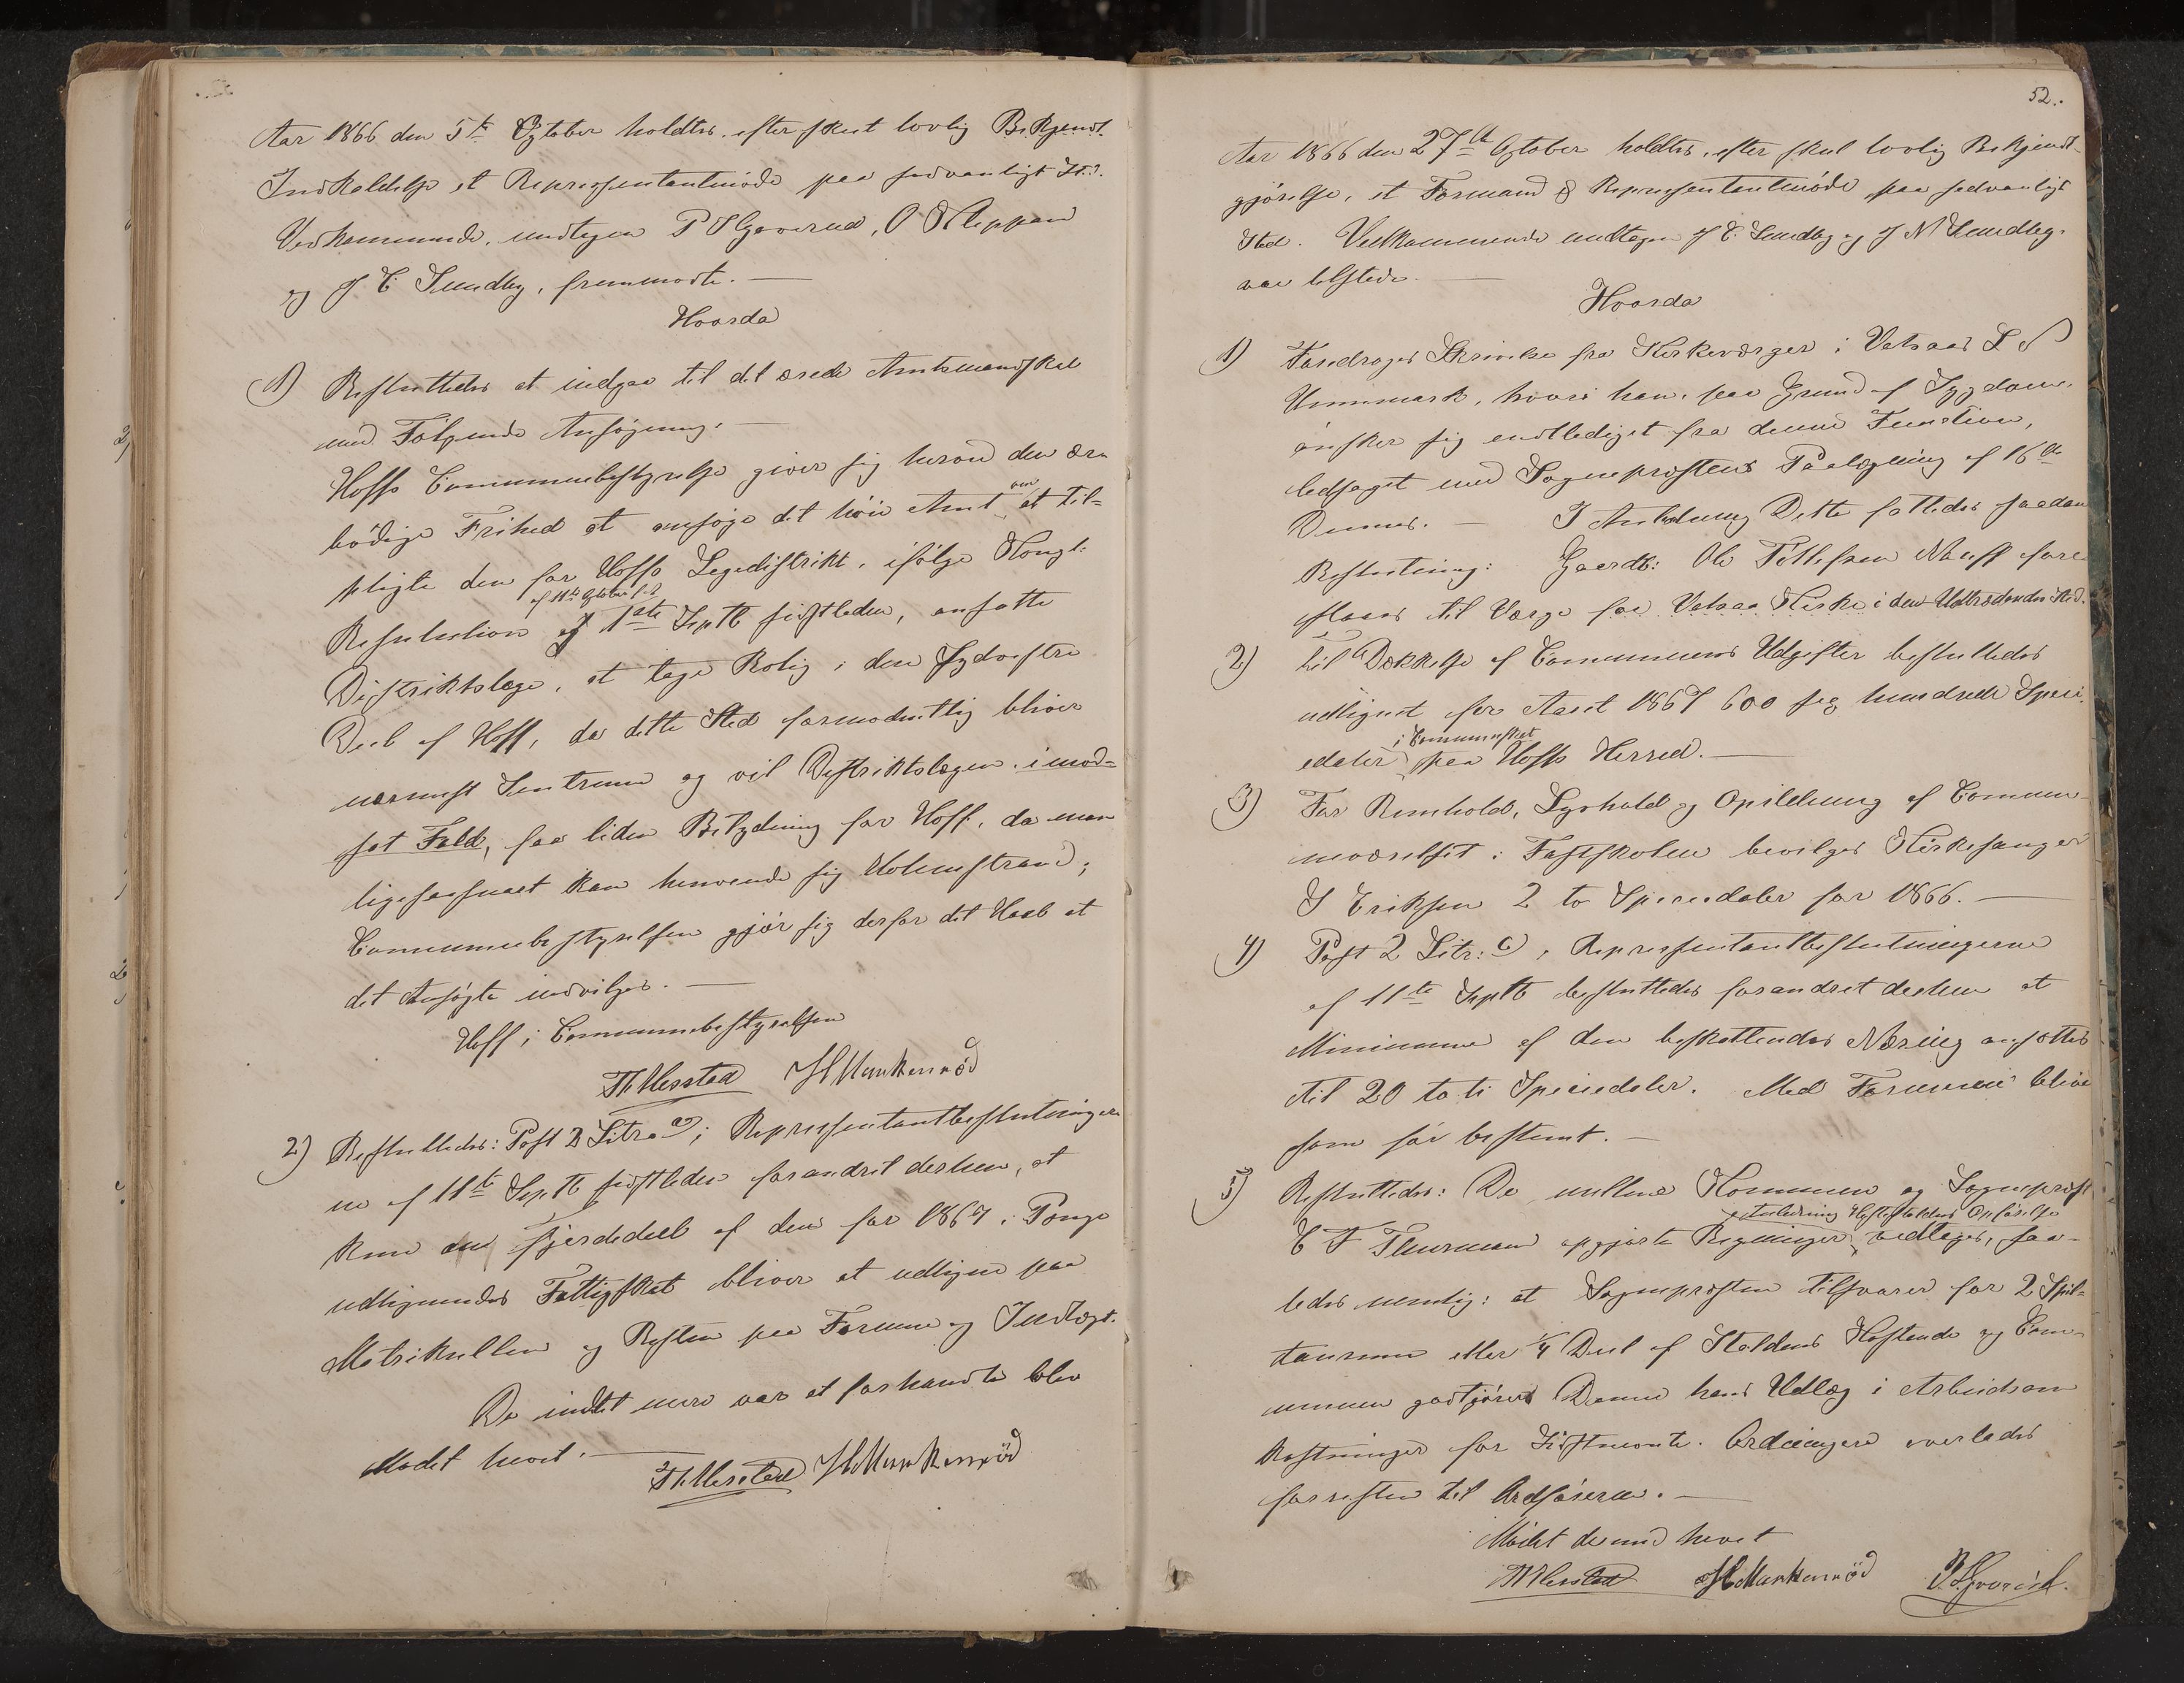 Aar 1866 den 5te Oktober holdtes, efter skeet lovlig Bekjendt.
Indkaldelse et Repræsentantmøde paa sedvanligt Sted.
Vedkommende, undtagen P H Gaverud, O Kleppan
og J C Sundby, fremmødte. —
Hvorda
1) Besluttedes at indgaa til det ærede Amtsmandskab
med Følgende Ansøgning: —
Hoffs Communebestyrelse giver sig herved den ære
bødige Frihed at ansøge det høie Amt om at til=
pligte den for Hoffs Legedistrikt, ifølge Kongl:
af 11te Oktober f. A.
Resolution af 1ste Septb sidstleden, ansatte
Distriktslæge, at tage Bolig i den Sydvestre
Deel af Hoff, da dette Sted formodentlig bliver
nærmest Sentrum og vil Distriktslægen i mod=
sat Fald, faa liden Betydning for Hoff, da man
ligesaasnart kan henvende sig Holmestrand;
Communebestyrelsen gjør sig derfor det Haab at
det Ansøgte indvilges. —
Hoff i Communebestyrelsen
Th Messtad H Markussrød
2) Besluttedes: Post 2 Litra c, i Repræsentantbeslutninger
ne af 11te Septb sidstleden forandret derhen, at
kun en fjerdedeel af den for 1867 i Penge
udlignendes Fattigskat bliver at udligne paa
Matrikullen og Resten paa Formue og Indtægt.
Da indtet mere var at forhandle blev
Mødet hevet. —
Th Messtad H Markussrød
52.
Aar 1866 den 27de Oktober holdtes, efter skeet lovlig Bekjendt-
gjørelse, et Formand & Repræsentantmøde paa sedvanligt
Sted. Vedkommende undtagen J C Sundby og J N Sundby.
var tilstede. —
Hvorda
1) Foredroges Skrivelse fra Kirkeværger i Vatsaas L N
Unnmark, hvori han, paa Grund af Sygdom,
ønsker sig entlediget fra denne Function,
ledsaget med Sogneprestens Paategning af 16de
Dennes. — I Anledning Dette fattedes saadan
Beslutning: Gaardb: Ole Tellefsen Næss fore
slaaes til Værge for Vatsaa Kirke i den Udtrædendes Sted.
2) Til Dækkelse af Communens Udgifter besluttedes
udlignet for Aaret 1867 600 sex hundrede Speci
i Communeskat
edaler paa Hoffs Herred. —
3) For Renhold, Lyshold og Opildning af Commun-
eværelset i Fastskolen bevilges Kirkesanger
S Eriksen 2 to Speciedaler for 1866. —
4) Post 2 Litr: c, i Repræsentantbeslutningerne
af 11te Septb besluttedes forandret derhen at
Minimum af den beskattendes Næring ansættes
til 20 to ti Speciedaler. Med Formuen blive
som før bestemt. —
5) Besluttedes: De mellem Kommunen og Sogneprest
i Anledning Hestestaldens Opførelse
C F Thurmann opgjorte Regninger vedtages, saa-
ledes nemlig: at Sognepresten tilsvarer for 2 Spil=
taurum eller ¼ Deel af Staldens Kostende og Com-
munen godtgjøres Denne hans Udlæg i Arbeidsom
kostninger for Sidstnevnte. Ordningen overlades
forresten til Ordføreren. —
Mødet dermed hevet
Th Messtad H Markussrød